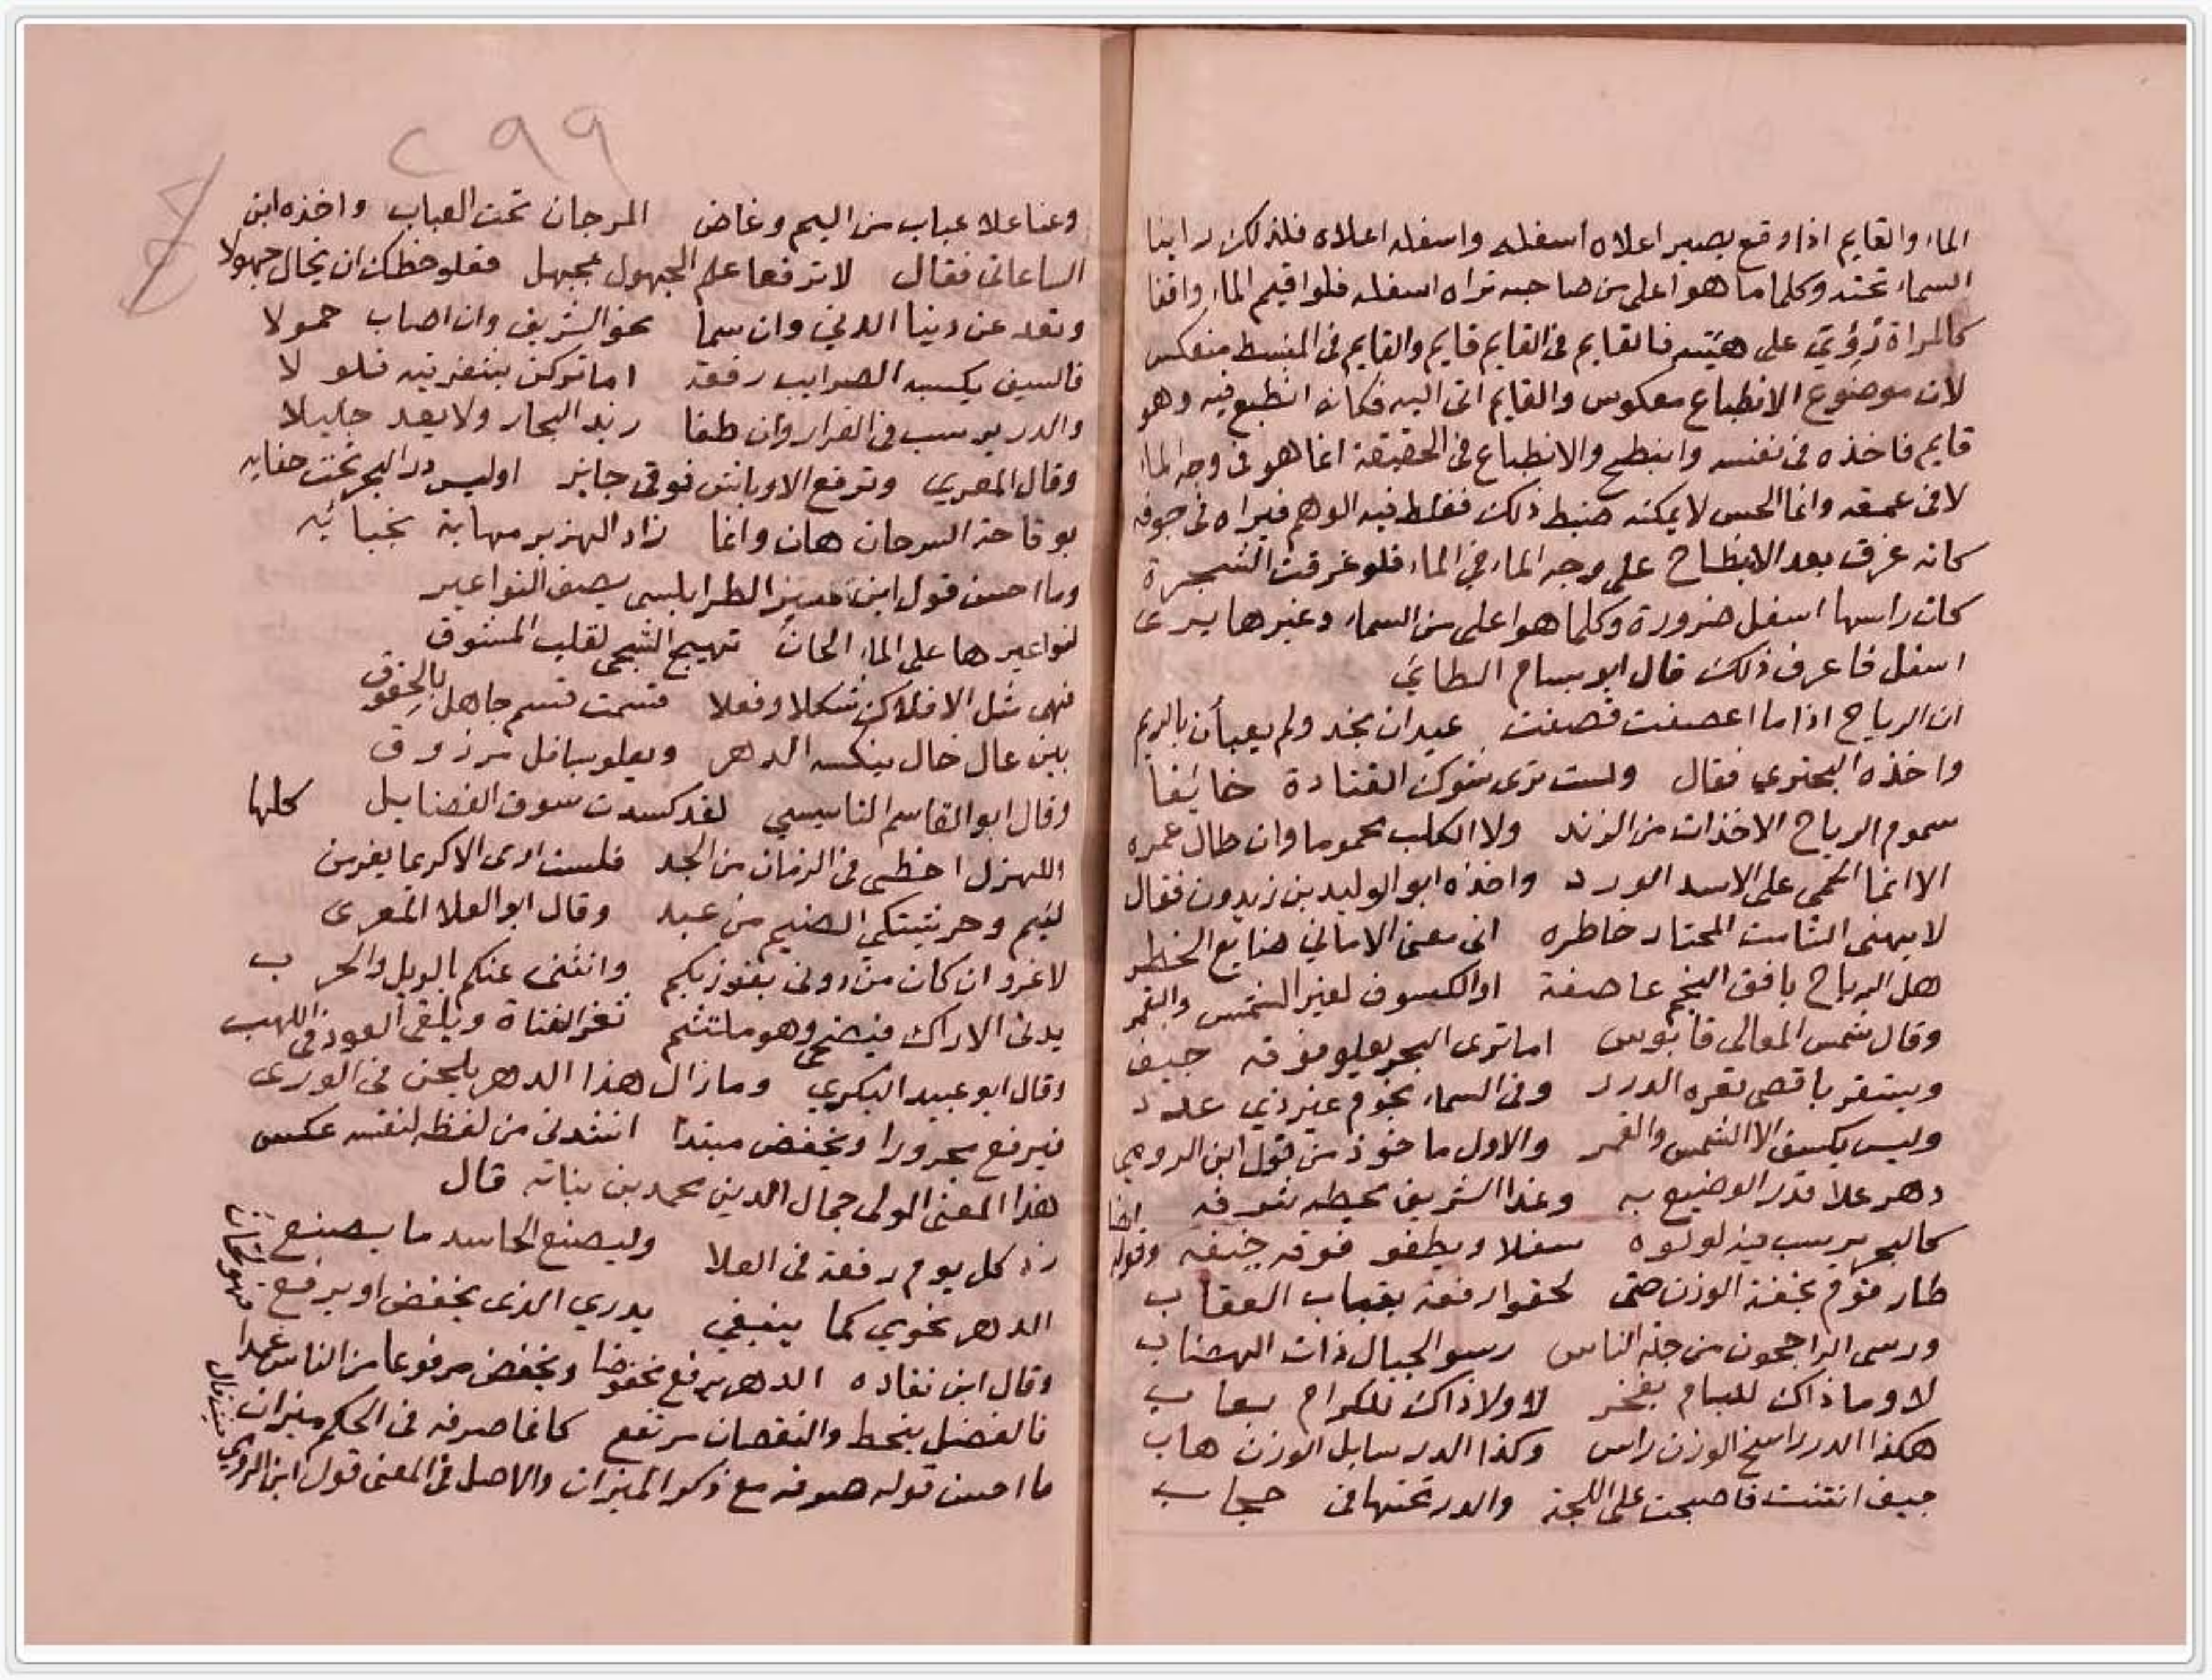 الماء والقايم اذا وقع يصير اعلاه اسفله واسفله اعلاه فلذلك راينا
السماء تحته وكلما ما هو اعلى من صاحبه تراه اسفله فلو اقيم الماء واقفا
كالمراة تؤتي على هيئته فالقايم في القايم قايم والقايم في المنبسط منعكس
لان موضوع الانطباع معكوس والقايم اتى اليه فكانه انطبع فيه وهو
قايم فاخذه في نفسه وانبطح والانطباع في الحقيقة انما هو في وجه الماء
لا في عمقه وانما الحس لا يمكنه ضبط ذلك فغلط فيه الوهم فيراه في جوفه
كانه غرق بعد الانبطاح على وجه الماء في الماء فلو غرقت الشجرة
كان راسها اسفل ضرورة وكلما هو اعلى من السماء وغيرها يرى
اسفل فاعرف ذلك قال ابو تمام الطائي
ان الرياح اذا ما اعصفت قصفت عيدان نجد ولم يعبأن بالرتم
واخذه البحتري فقال ولست ترى شوك القتادة خائفا
سموم الرياح الاخذات من الزند ولا الكلب محموما وان طال عمره
الا انما الحمى على الاسد الورد واخذه ابو الوليد بن زيدون فقال
لا يهنى الشامت المحتار خاطره اني معنى الاماني ضايع الخطر
هل الرياح بافق النجم عاصفة او الكسوف لغير الشمس والقمر
وقال شمس المعالي قابوس اما ترى البحر يعلو فوقه جيف
ويستقر باقصى قعره الدرر وفي السماء نجوم غير ذي عدد
وليس يكسف الا الشمس والقمر والاول ماخوذ من قول ابن الرومي
دهر علا قدر الوضيع به وغدا الشريف يحطه شرفه
كالبحر يرسب فيه لولوه سفلا ويطفو فوقه جيفه وقوله ايضا
طار قوم بخفة الوزن حتى لحقوا رفعة بقباب العقاب
ورسى الراجحون من جلة الناس رسو الجبال ذات الهضاب
لا وما ذاك لليام بفخر لا ولا ذاك للكرام بعاب
هكذا الدر راسخ الوزن راس وكذا الدر سايل الوزن هاب
جيف انتنت فاصبحت على اللجة والدر تحتها في حجاب
٢٩٩
وغثا علا عباب من اليم وغاض المرجان تحت العباب واخذه ابن
الساعاتي فقال لا ترفعا علم الجهول بجهل فعلو حظك ان يخال جهولا
وتعد عن دنيا الدني وان سما نحو الشريف وان اصاب خمولا
فالسيف يكسبه الضرايب رفعة اما تركن بشفرتيه فلولا
والدر يرسب في القرار وان طفا زبد البحار ولا يعد جليلا
وقال المعري وترفع الاوباش فوقي جايز اوليس در البحر تحت جفايه
بوقاحة السرحان هان وانما زاد الهزبر مهابة بخبائه
وما احسن قول ابن منير الطرابلسي يصف النواعير
لنواعيرها على الماء الحان تهيج الشجى لقلب المشوق
فهي مثل الافلاك شكلا وفعلا قسمت قسم جاهل بالحقوق
بين عال خال ينكسه الدهر ويعلو بسافل مرزوق
وقال ابو القاسم النابيسي لقد كسدت سوق الفضايل كلها
اللهزل احظى في الزمان من الجد فلست ارى الا كريما يفر من
ليم وحر يشتكي الضيم من عبد وقال ابو العلا المعري
لا غرو ان كان من دوني يفوز بكم وانثنى عنكم بالويل والحرب
يدنى الاراك فيضحى وهو ملتثم ثغر الفتاة ويلقى العود في اللهب
وقال ابو عبيد البكري وما زال هذا الدهر يلحن في الورى
فيرفع مجرورا ويخفض مبتدا انشدني من لفظه لنفسه عكس
هذا المعنى المولى جمال الدين محمد بن نباته قال
زد كل يوم رفعة في العلا وليصنع الحاسد ما يصنع
الدهر نحوي كما ينبغي يدري الذي يخفض او يرفع
وقال ابن نقاده الدهر يرفع مخفوضا ويخفض مرفوعا من الناس عمدا
فالفضل ينحط والنقصان مرتفع كانما صرفه في الحكم ميزان
ما احسن قوله صرفه مع ذكر الميزان والاصل في المعنى قول ابن الرومي